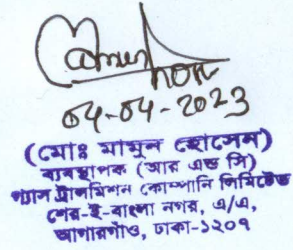 ০৫-০৪-2023
(মোঃ মামুন হোসেন)
ব্যবস্থাপক (আর এন্ড পি)
গ্যাস ট্রান্সমিশন কোম্পানি লিমিটেড
শের-ই-বাংলা নগর, এ/এ,
আগারগাঁও, ঢাকা-১২০৭